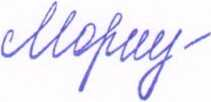 Мориц